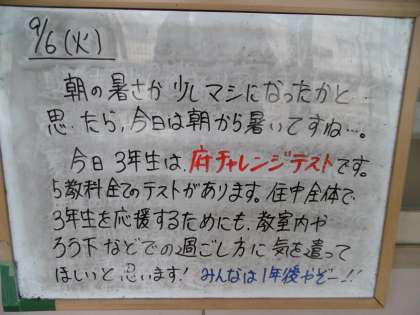 9/6(火)
朝の暑さが少しマシになったかと
思ったら、今日は朝から暑いですね…。
今日3年生は、府チャレンジテストです。
5教科全てのテストがあります。住中全体で
3年生を応援するためにも、教室内や
ろう下などでの過ごし方に気を遣って
ほしいと思います！みんなは1年後やぞー!!